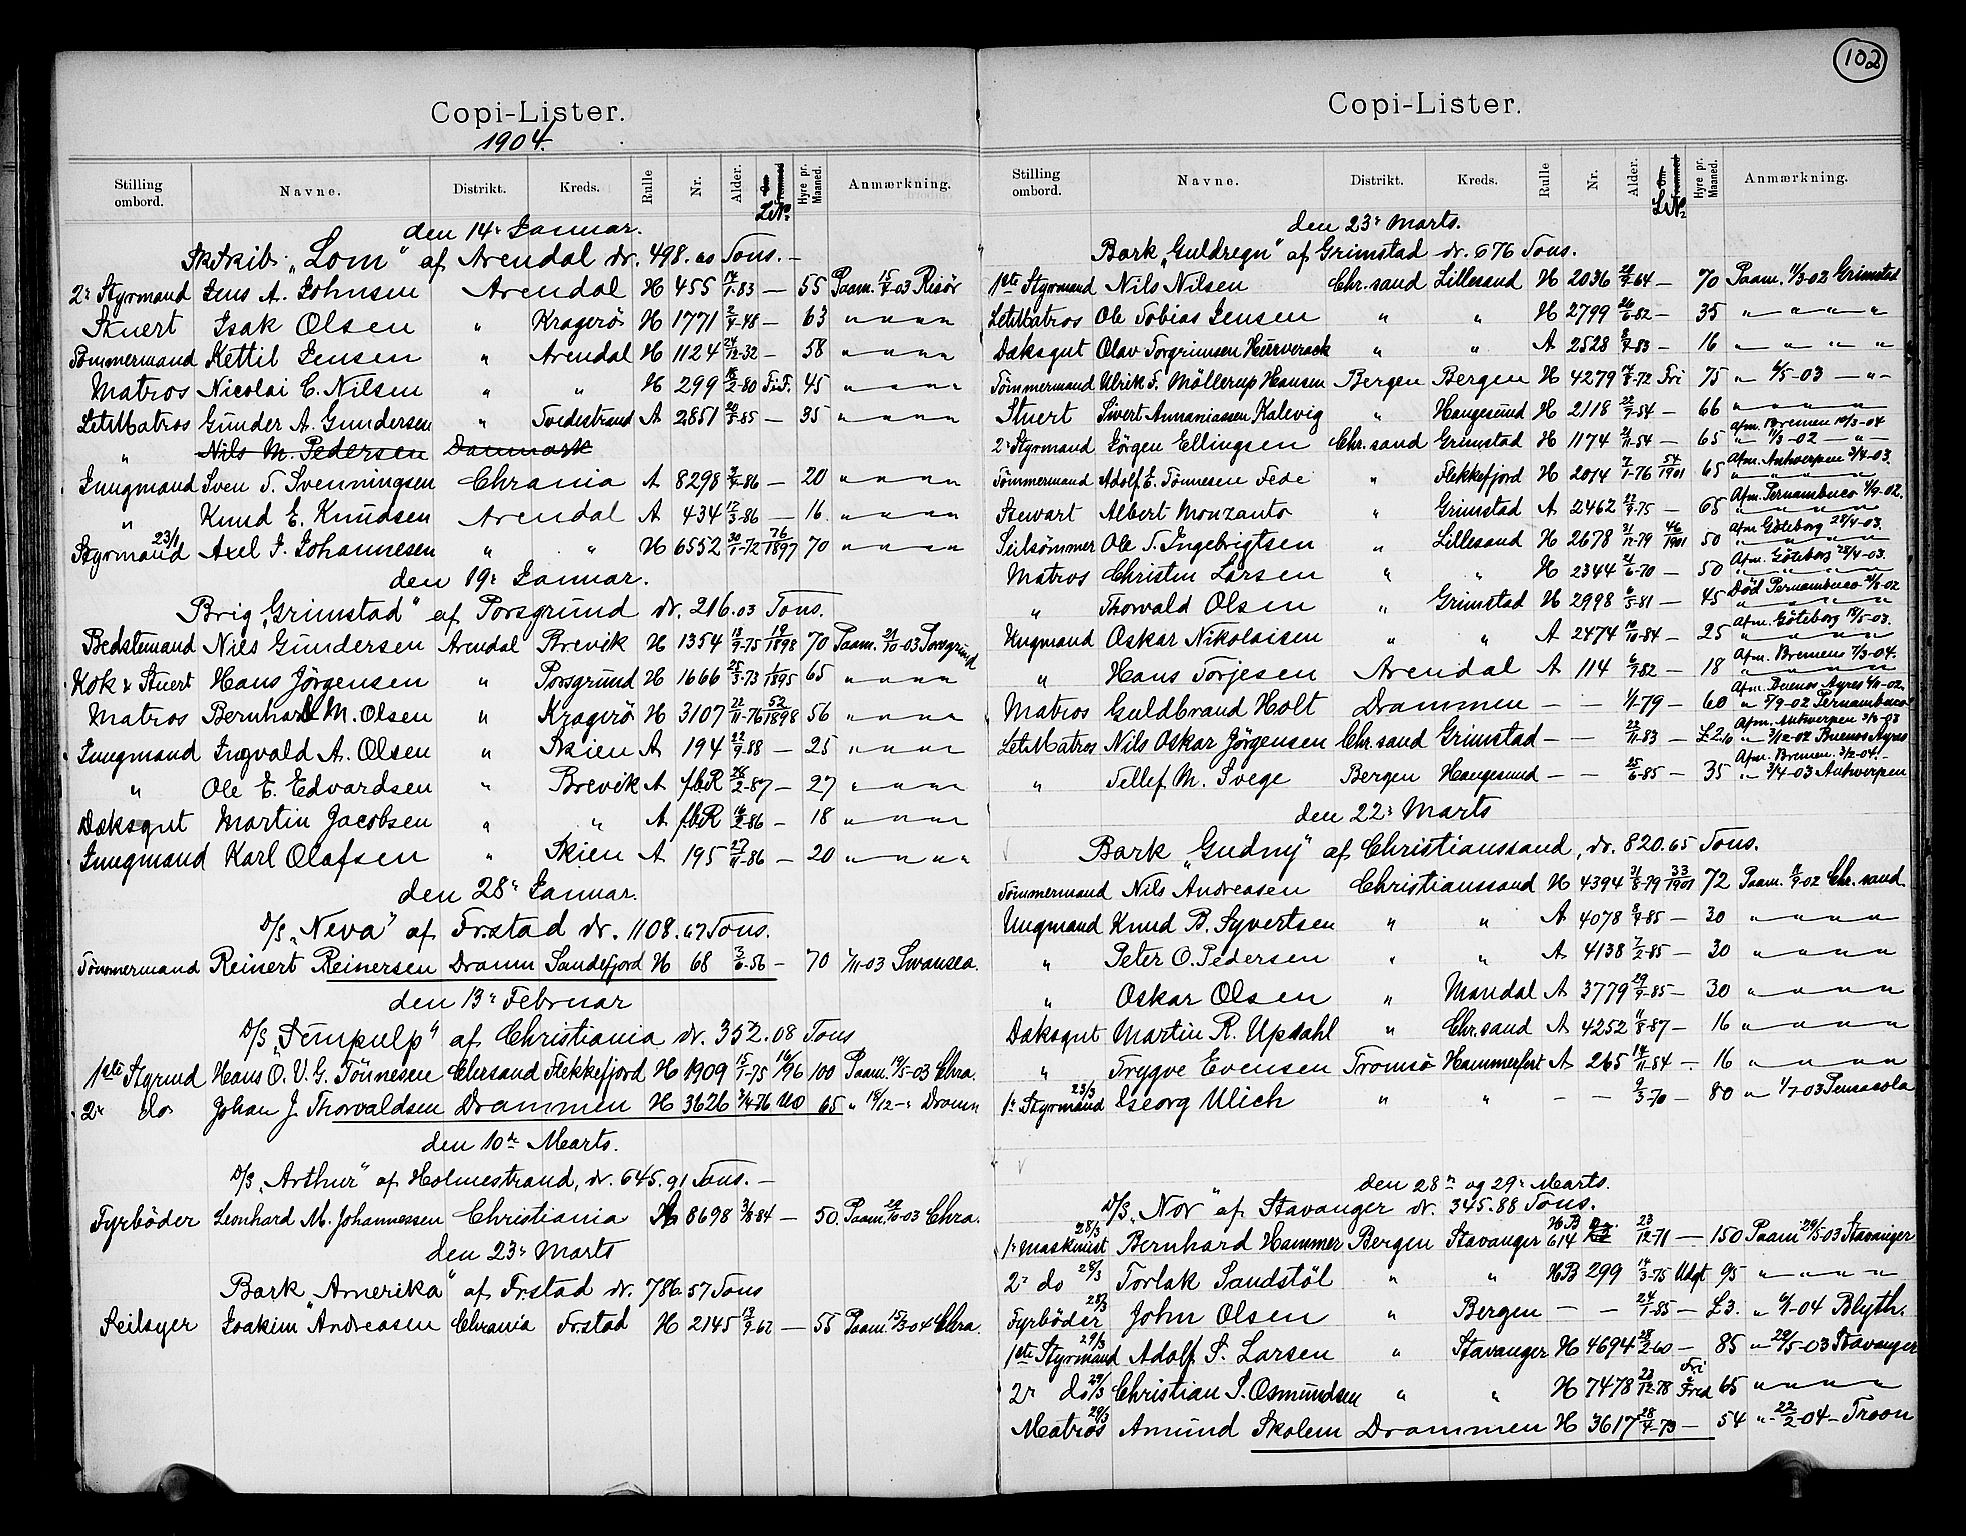 Copi-Lister.
1904.
Stilling ombord. Navne. Distrikt. Kreds. Rulle Nr. Alder. Hyre pr. Maaned. Anmærkning.
den 14' Januar.
Sk.Skib. "Lom" af Arendal dr. 498.00 Tons.
2' Styrmand Jens A. Johnsen Arendal H 455 14/1-83 — 55 Paam. 15/7-03 Risör
Stuert Isak Olsen " Kragerö H 1771 2/4-48 — 63 " " " "
Tömmermand Kettil Jensen " Arendal H 1124 24/12-32 — 58 " " " "
Matros Nicolai C. Nilsen " " H 299 18/2-80 45 " " " "
LetMatros Gunder A. Gundersen " Tvedestrand A 2851 20/5-85 — 35 " " " "
" Nils M. Pedersen Danmark
Jungmand Sven T. Svenningsen Chrania A 8298 — 20 " " " "
" Knud E. Knudsen Arendal A 434 17/3-86 — 16 " " " "
Styrmand 23/1 Axel J. Johannesen " " H 6552 30/1-72 76/1897 70 " " " "
den 19' Januar.
Brig "Grimstad" af Porsgrund dr. 216.03 Tons.
Bedstemand Nils Gundersen Arendal Brevik H 1354 13/9-75 19/1898 70 Paam. 21/10-03 Porsgrund
Kok & Stuert Hans Jörgensen " Porsgrund H 1666 25/3-73 1/1895 65 " " " "
Matros Bernhard M. Olsen " Kragerö H 3107 22/11-76 52/1898 56 " " " "
Jungmand Ingvald A. Olsen " Skien A 194 22/9-88 — 25 " " " "
" Ole E. Edvardsen " Brevik A f.b.R 26/2-87 — 27 " " " "
Dæksgut Martin Jacobsen " " A f.b.R 16/2-86 — 18 " " " "
Jungmand Karl Olafsen " Skien A 195 27/11-86 — 20 " " " "
den 28' Januar.
D/S "Neva" af Frstad dr. 1108.67 Tons.
Tömmermand Reinert Reinersen Dramn Sandefjord H 68 3/6-56 — 70 1/11-03 Swansea.
den 13' Februar
D/S "Tempulp" af Christiania dr. 352.08 Tons
1ste Styrmd Hans O. V. G. Tönnesen Chrsand Flekkefjord H 1909 15/1-75 16/96 100 Paam. 19/5-03 Chra.
2' do Johan J. Thorvaldsen Drammen H 3626 2/4-76 65 " 18/12 - " Dramn
den 10de Marts.
D/S "Arthur" af Holmestrand, dr. 645.91 Tons. —
Fyrböder Leonhard M. Johannessen Christiania A 8698 3/8-84 — 50 Paam. 20/10-03 Chra.
den 23' Marts
Bark "Amerika" af Frstad dr. 786.57 Tons
Seilsyer Joakim Andreasen Chrania Frstad H 2145 13/9-62 — 55 Paam. 15/3-04 Chra.
102
Copi-Lister.
Stilling ombord. Navne. Distrikt. Kreds. Rulle Nr. Alder. Hyre pr. Maaned. Anmærkning.
den 23' Marts.
Bark "Guldregn" af Grimstad dr. 676 Tons.
1ste Styrmand Nils Nilsen Chr.sand Lillesand H 2036 — 70 Paam. 11/3-02 Grimstad
LetMatros Ole Tobias Jensen " " H 2799 26/6-82 — 35 " " " "
Dæksgut Olav Torgrimsen Hurverack " " A 2528 — 16 " " " "
Tömmermand Ulrik F. Möllerup Hansen Bergen Bergen H 4279 17/8-72 Fri 75 " 6/5-03 — " —
Stuert Sivert Annaniassen Kalevig " Haugesund H 2118 22/9-54 — 66 " " " "
Afm. Bremen 10/3-04
2' Styrmand Jörgen Ellingsen Chr.sand Grimstad H 1174 2/11-54 — 65 " 11/3-02 — " —
Afm. Antwerpen 3/4-03.
Tömmermand Adolf E. Tönnesen Fede " Flekkefjord H 2074 7/1-76 54/1901 65 " " " "
Afm. Pernambuco 1/9-02.
Stewart Albert Monzanto " Grimstad A 2462 22/9-75 — 65 " " " "
Afm. Göteborg 28/4-03.
Seilsömmer Ole T. Ingebrigtsen " Lillesand H 2678 31/12-79 46/1901 50 " " " "
Afm. Göteborg 28/4-03.
Matros Christen Larsen " " H 2344 21/6-70 — 50 " " " "
Död Pernambuco
" Thorvald Olsen " Grimstad H 2998 6/5-81 — 45 " " " "
Afm. Göteborg 18/5-03.
Ungmand Oskar Nikolaisen " " A 2474 10/10-84 — 25 " " " "
Afm. Bremen 7/3-04.
" Hans Torjesen Arendal A 114 — 18 " " " "
Afm. Buenos Ayres 4/11-02.
Matros Guldbrand Holt Drammen — — 1/1-79 — 60 " 5/9-02 Pernambuco
Afm. Antwerpen 3/4-03
LetMatros Nils Oskar Jörgensen Chr.sand Grimstad — — 22/11-83 — £2.10 " 3/12-02 Buenos Ayres
Afm. Bremen. 3/2-04.
" Tellef M. Svege Bergen Haugesund — — 25/6-85 — 35 " 3/4-03 Antwerpen
den 22' Marts
Bark "Gudny" af Christianssand, dr. 820.65 Tons.
Tömmermand Nils Andreasen Christianssand H 4394 31/8-79 33/1901 72 Paam. 11/9-02 Chr.sand
Ungmand Knud B. Syvertsen " " A 4078 8/9-85 — 30 " " " "
" Peter O. Pedersen " " A 4138 7/2-85 — 30 " " " "
" Oskar Olsen " Mandal A 3779 29/9-85 — 30 " " " "
Dæksgut Martin R. Updahl " Chr.sand A 4252 11/8-87 — 16 " " " "
" Trygve Evensen Tromsö Hammerfest A 265 14/11-84 — 16 " " " "
1' Styrmand 23/3 Georg Ulich " " — — 2/3-70 — 80 " 1/7-03 Pensacola
den 28' og 29' Marts.
D/S "Nor" af Stavanger dr. 345.88 Tons.
1' Maskinist 28/3 Bernhard Hammer Bergen Stavanger HB 614 23/12-71 — 150 Paam 29/5-03 Stavanger
2' do 28/3 Torlak Sandstöl " " HB 299 14/3-75 Udgt 95 " " " "
Fyrböder 28/3 John Olsen " Bergen — — 24/1-85 — £3. " 6/1-04 Blyth.
1ste Styrmand 29/3 Adolf S. Larsen " Stavanger H 4694 28/2-60 — 85 " 29/5-03 Stavanger
2' do 29/3 Christian S. Osmundsen " " H 7478 23/12-78 Fri Fred 65 " " " "
Matros 29/3 Amund Skolem Drammen H 3617 28/4-73 — 54 " 22/2-04 — Troon